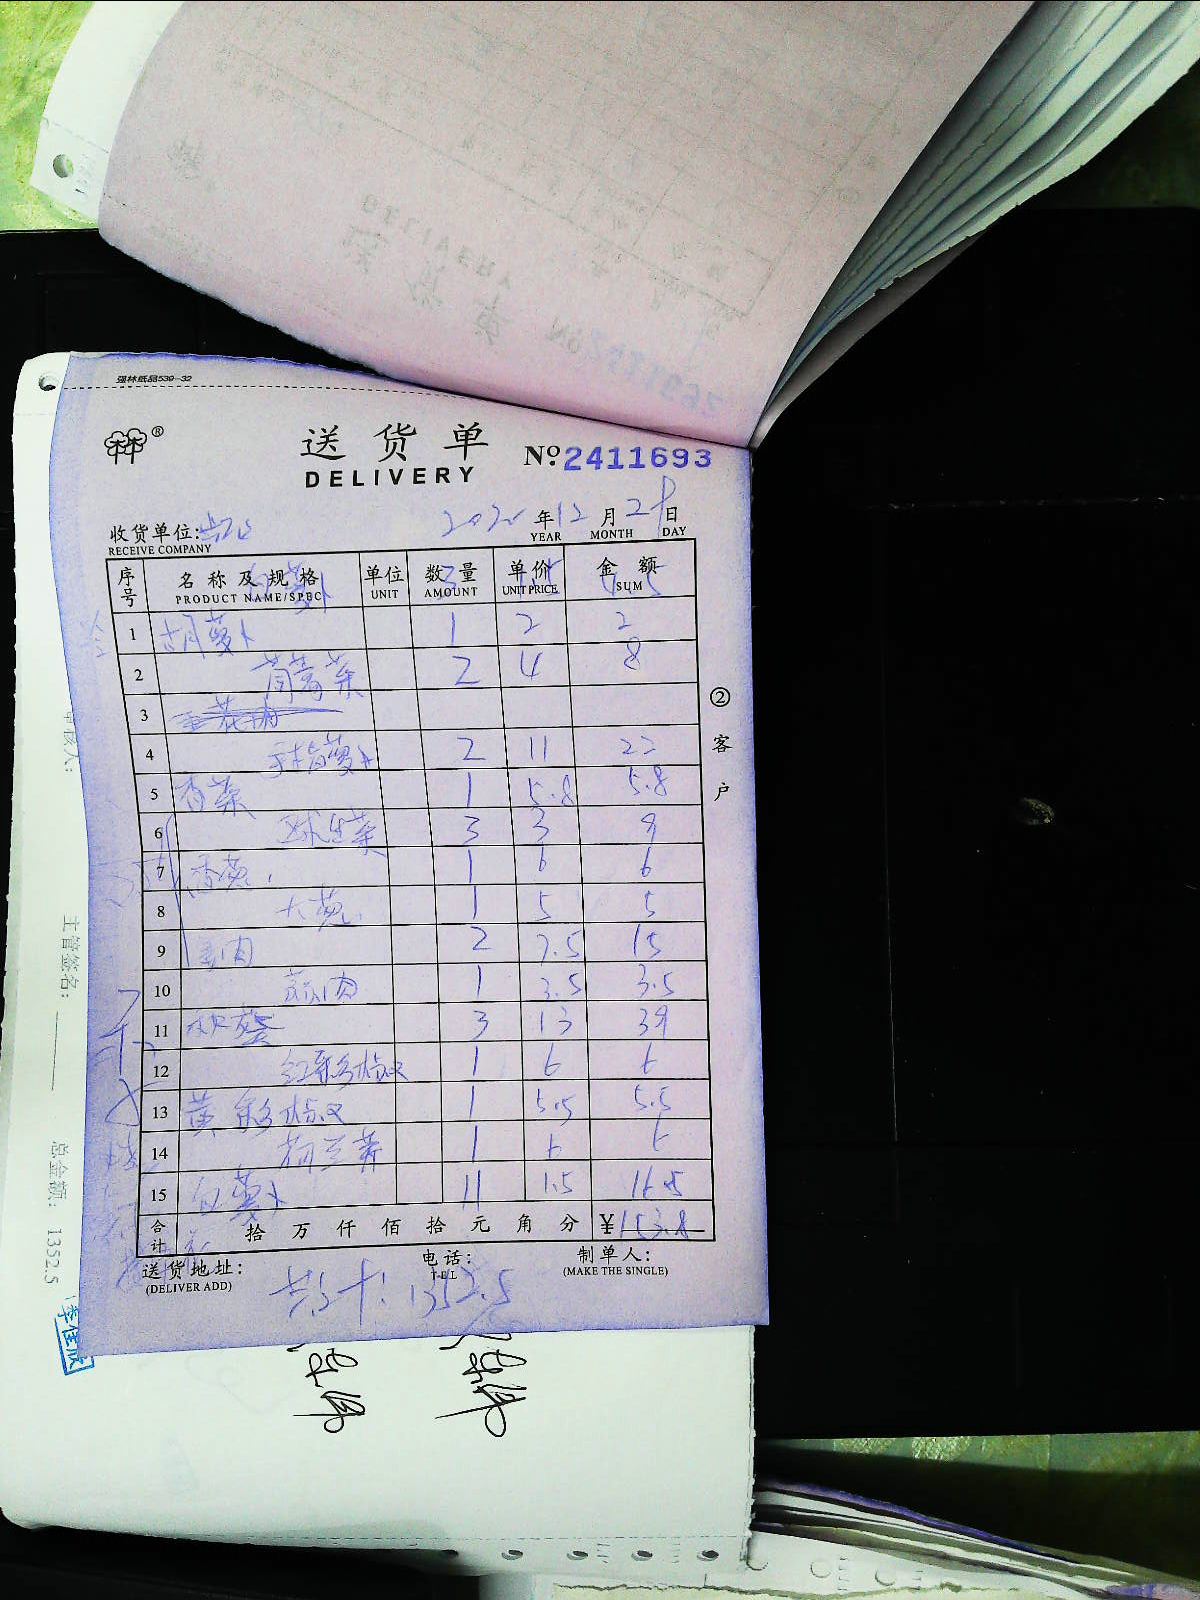 强林纸品539-32
®
送货单
DELIVERY
No 2411693
收货单位:
RECEIVE COMPANY
2020 年 12 月 28 日
YEAR MONTH DAY
序号 名称及规格 单位 数量 单价 金额
PRODUCT NAME/SPEC UNIT AMOUNT UNIT PRICE SUM
白萝卜 3 1.5 4.5
1 胡萝卜 1 2 2
2 茼蒿菜 2 4 8
3 五花肉
4 手指萝卜 2 11 22
5 香菜 1 5.8 5.8
6 3 3 9
7 香葱 1 6 6
8 大葱 1 5 5
9 姜肉 2 7.5 15
10 蒜肉 1 3.5 3.5
11 秋葵 3 13 39
12 红彩椒 1 6 6
13 黄彩椒 1 5.5 5.5
14 荷兰芹 1 6 6
15 白萝卜 11 1.5 16.5
合计 拾 万 仟 佰 拾 元 角 分 ¥153.8
送货地址:
(DELIVER ADD)
电话:
TEL
制单人:
(MAKE THE SINGLE)
共计: 1352.5
②客户
审核人:
主管签名:
总金额: 1352.5
李佳欣